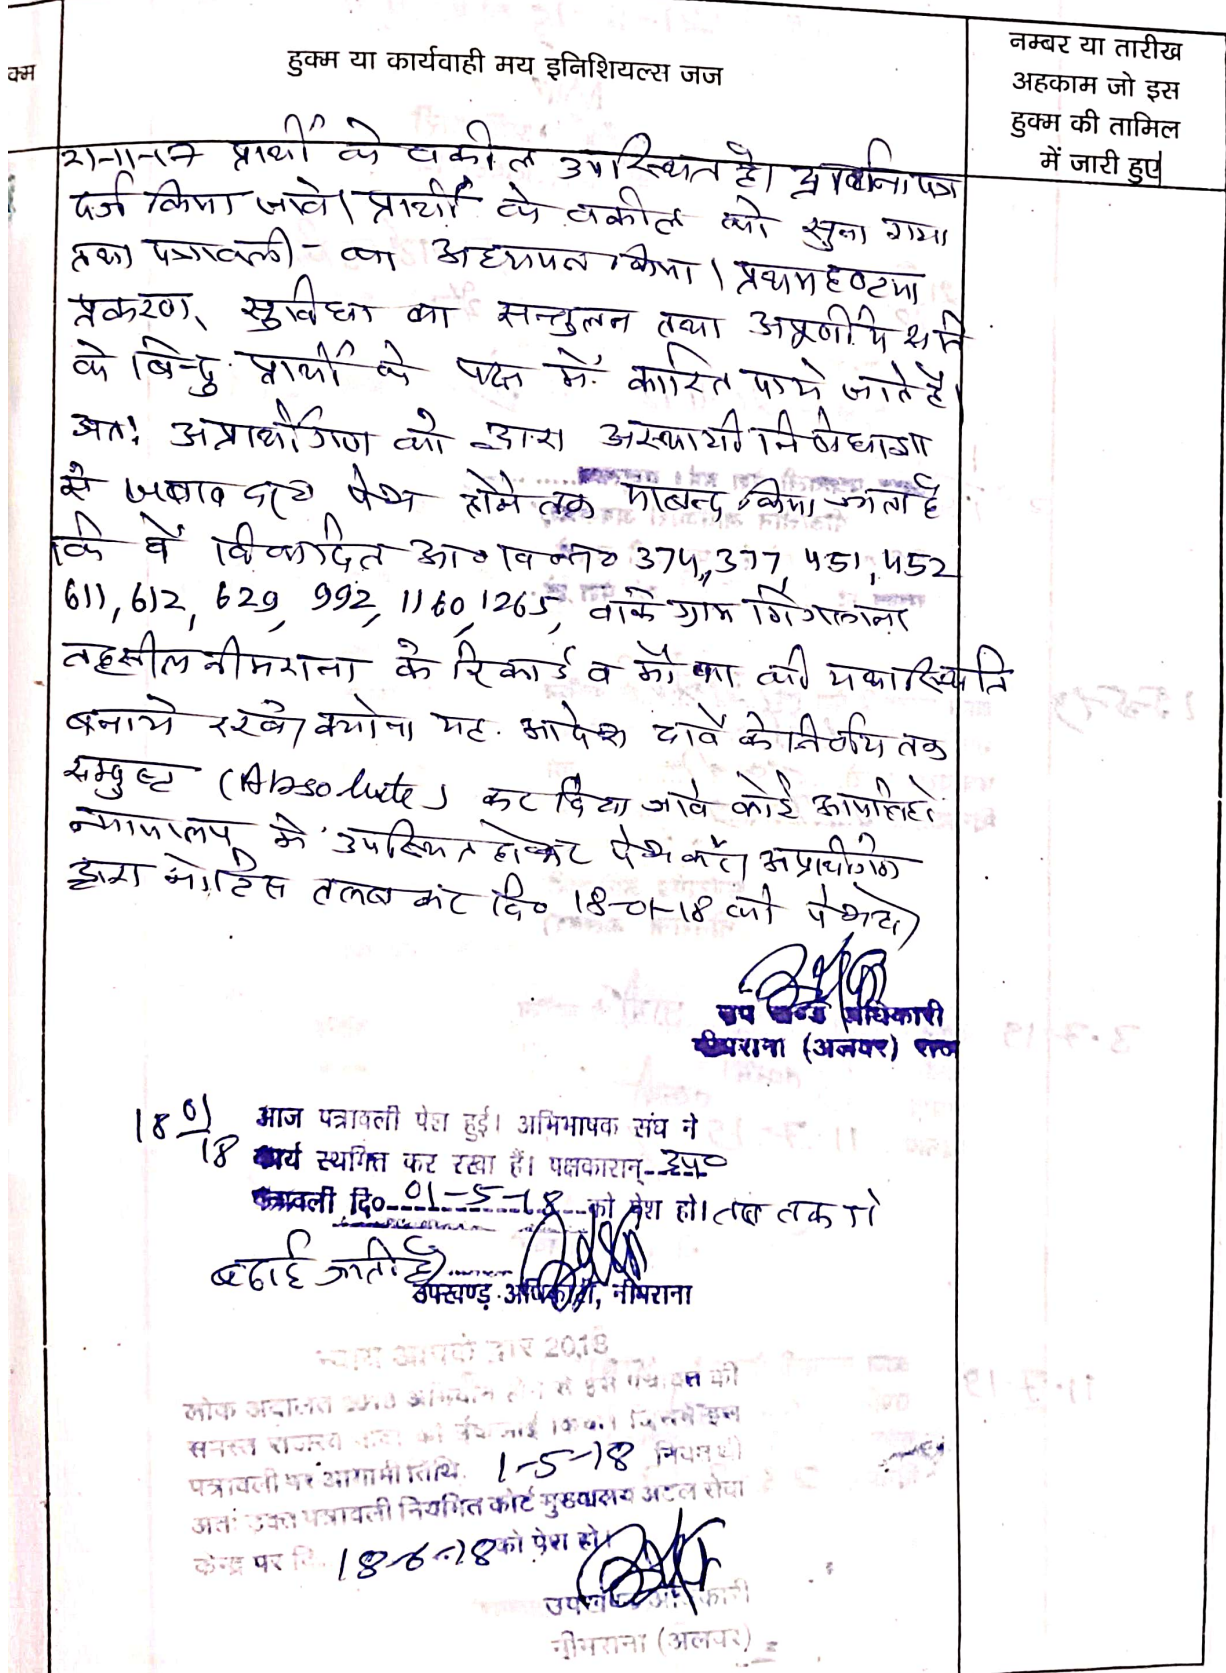 क्म
हुक्म या कार्यवाही मय इनिशियल्स जज
नम्बर या तारीख
अहकाम जो इस
हुक्म की तामिल
में जारी हुए
21-11-17 प्रार्थी के वकील उपस्थित है। प्रार्थना पत्र
दर्ज किया जावे। प्रार्थी के वकील को सुना गया
तथा पत्रावली का अध्ययन किया। प्रथम दृष्टया
प्रकरण, सुविधा का सन्तुलन तथा अपूर्णीय क्षति
के बिन्दु प्रार्थी के पक्ष में कारित पाये जाते है।
अतः अप्रार्थीगण को अस्थायी निषेधाज्ञा
से जवाब पेश होने तक पाबन्द किया जाता है
कि वे विवादित आ०ख०न० 374, 377, 451, 452
611, 612, 629, 992, 1160, 1265, वाके ग्राम
तहसील नीमराना के रिकार्ड व मौका की यथास्थिति
बनाये रखे। क्योना यह आदेश दावे के निर्णय तक
सम्पुष्ट (Absolute) कर दिया जावे कोई आपत्ति हो
न्यायालय में उपस्थित होकर पेश करें। अप्रार्थीगण
द्वारा नोटिस तलब कर दि० 18-01-18 को पेश हो।
उप खण्ड अधिकारी
नीमराना (अलवर) राज
18/01/18 आज पत्रावली पेश हुई। अभिभाषक संघ ने
कार्य स्थगित कर रखा हैं। पक्षकारान् उप०
पत्रावली दि० 01-5-18 को पेश हो। तब तक
बढाई जाती है।
उपखण्ड अधिकारी, नीमराना
न्याय आपके द्वार 2018
लोक अदालत अभियान की
समस्त राजस्व इस
पत्रावली पर आगामी तिथि 1-5-18 नियत थी
अतः उक्त पत्रावली नियमित कोर्ट मुख्यालय अटल सेवा
केन्द्र पर दि 18-6-18 को पेश हो।
उपखण्ड अधिकारी
नीमराना (अलवर)